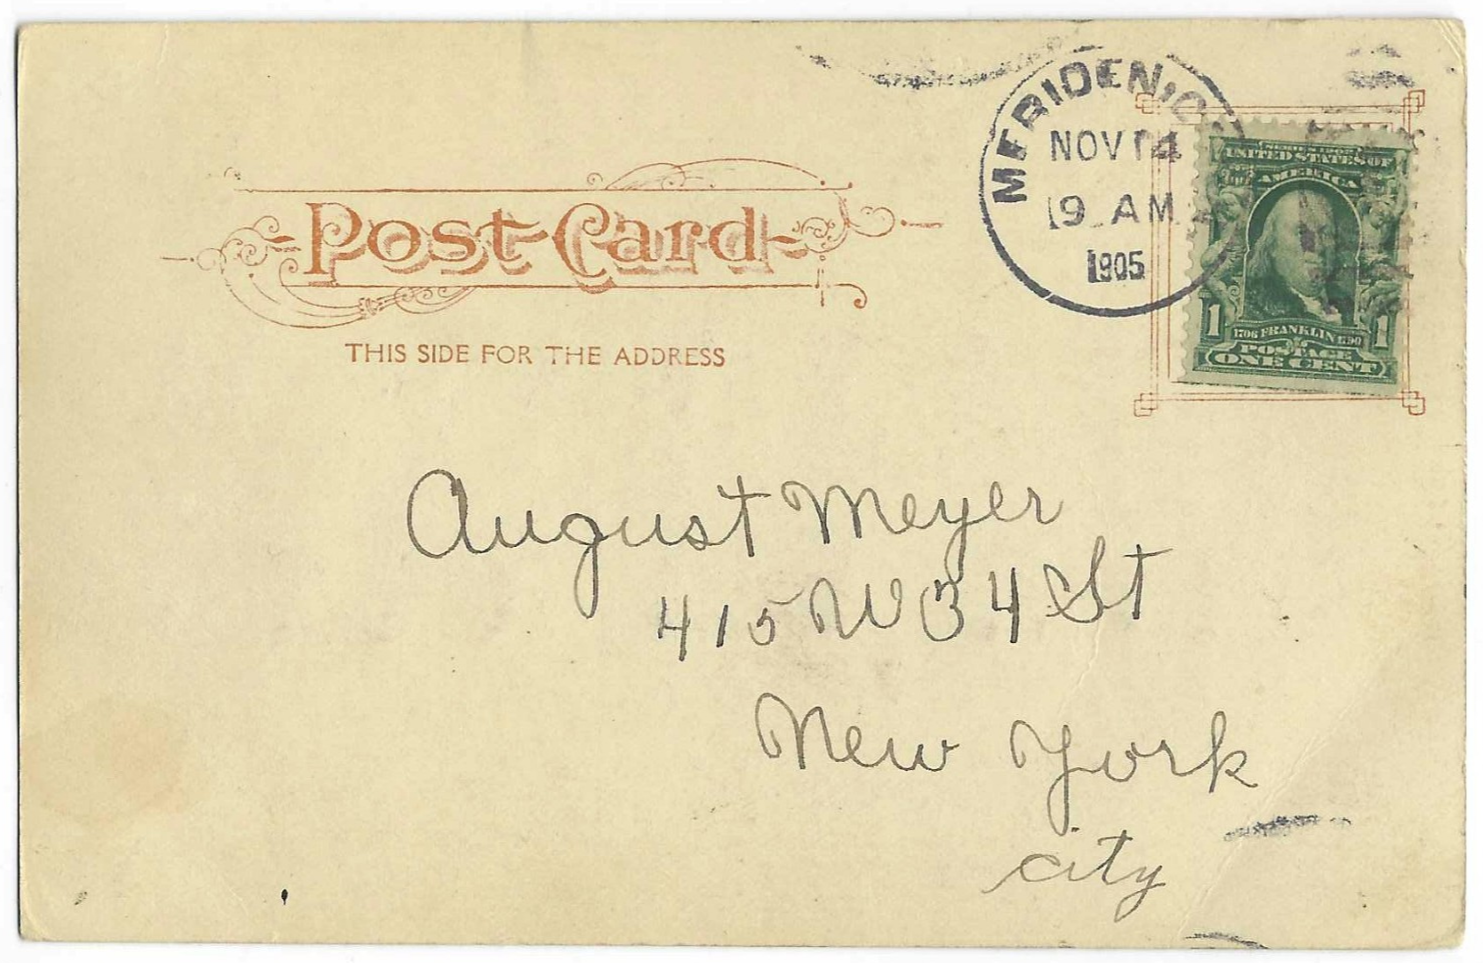 MERIDEN, C
NOV 14
9 AM
1905
SERIES 1902
UNITED STATES OF
AMERICA
1 1706 FRANKLIN 1790 1
POSTAGE
ONE CENT
Post Card
THIS SIDE FOR THE ADDRESS
August Meyer
415 W 34 St
New York
city